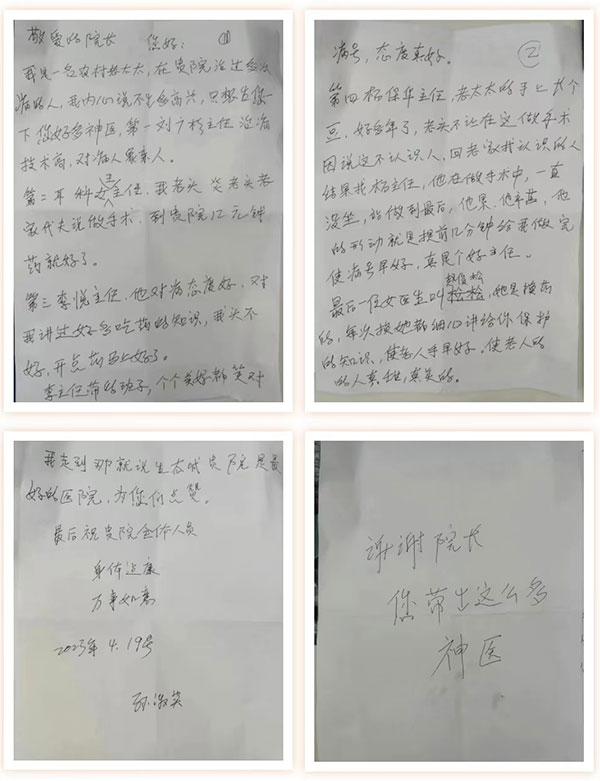 敬爱的院长 您好: ①
我是一名农村老太太,在贵院治过多次
病的人,我内心说不出多高兴,只想在您
下您好多神医,第一刘广杨主任治病
技术高,对病人象亲人。
第二耳科女主任,我老头 老头去老
家代夫说做手术,到贵院12元钟
药就好了。
第三李悦主任,他对病态度好,又对
我讲过好多吃药的知识,我头不
好,开点药马上好了。
李主任带的班子,个个美好都笑对
病号,态度真好。 ②
第四杨保华主任,老太太的手上长个
豆,好多年了,老头不让在这做手术
因说这不认识人,回老家找认识的人
结果找杨主任,他在做手术中,一直
没坐,站做到最后,他累,他
的行动就是提前几分钟给要做完
使病号早好,真是个好主任。
最后一位女医生叫 松松,她是换药
的,每次换她都细心讲给你保护
的知识,使老人手早好。使老人的
的人真甜,真美的。
我走到那就说生态城贵院是最
好的医院,为您们点赞。
最后祝贵院全体人员
身体健康
万事如意
2023年4.19号
孙淑英
谢谢院长
您带出这么多
神医